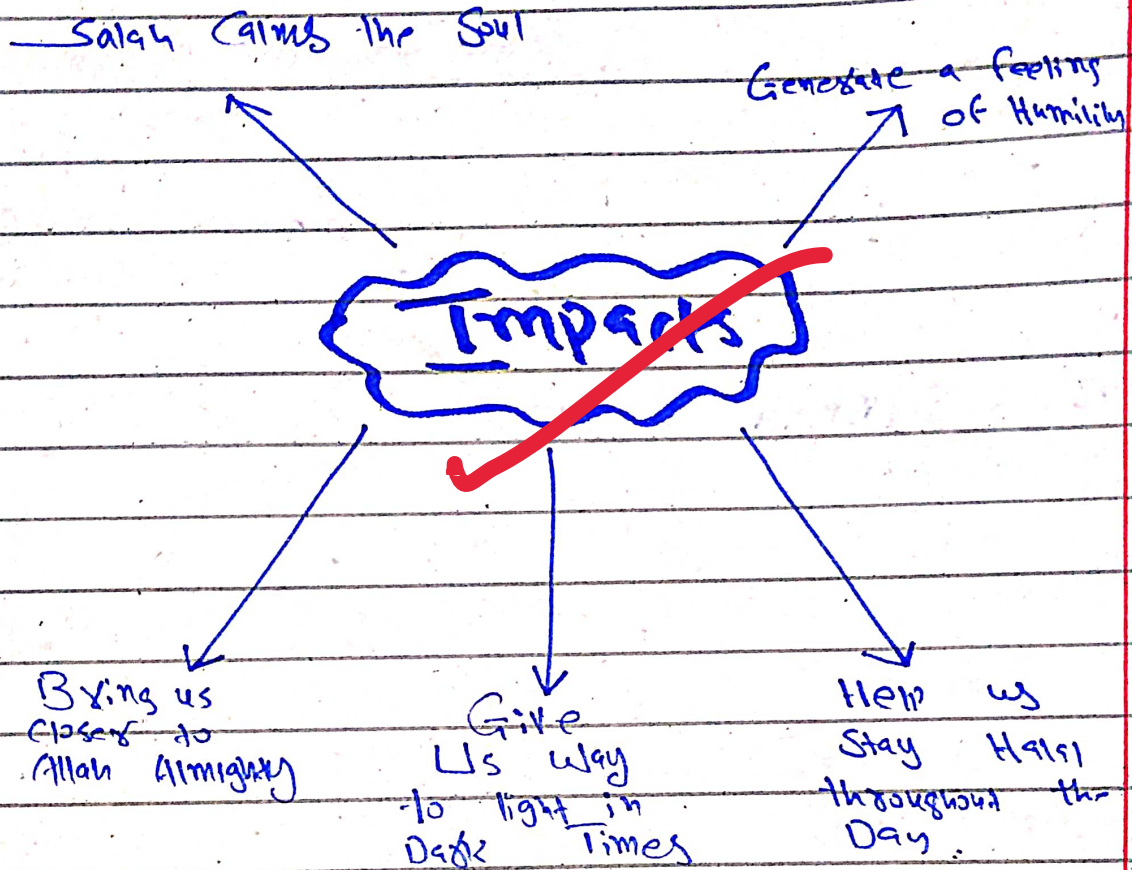 Salah Calms the Soul
Generate a feeling
of Humility
Impacts
Bring us
closer to
Allah Almighty
Give
Us way
to light in
Dark Times
Help us
Stay Halal
throughout the
Day.